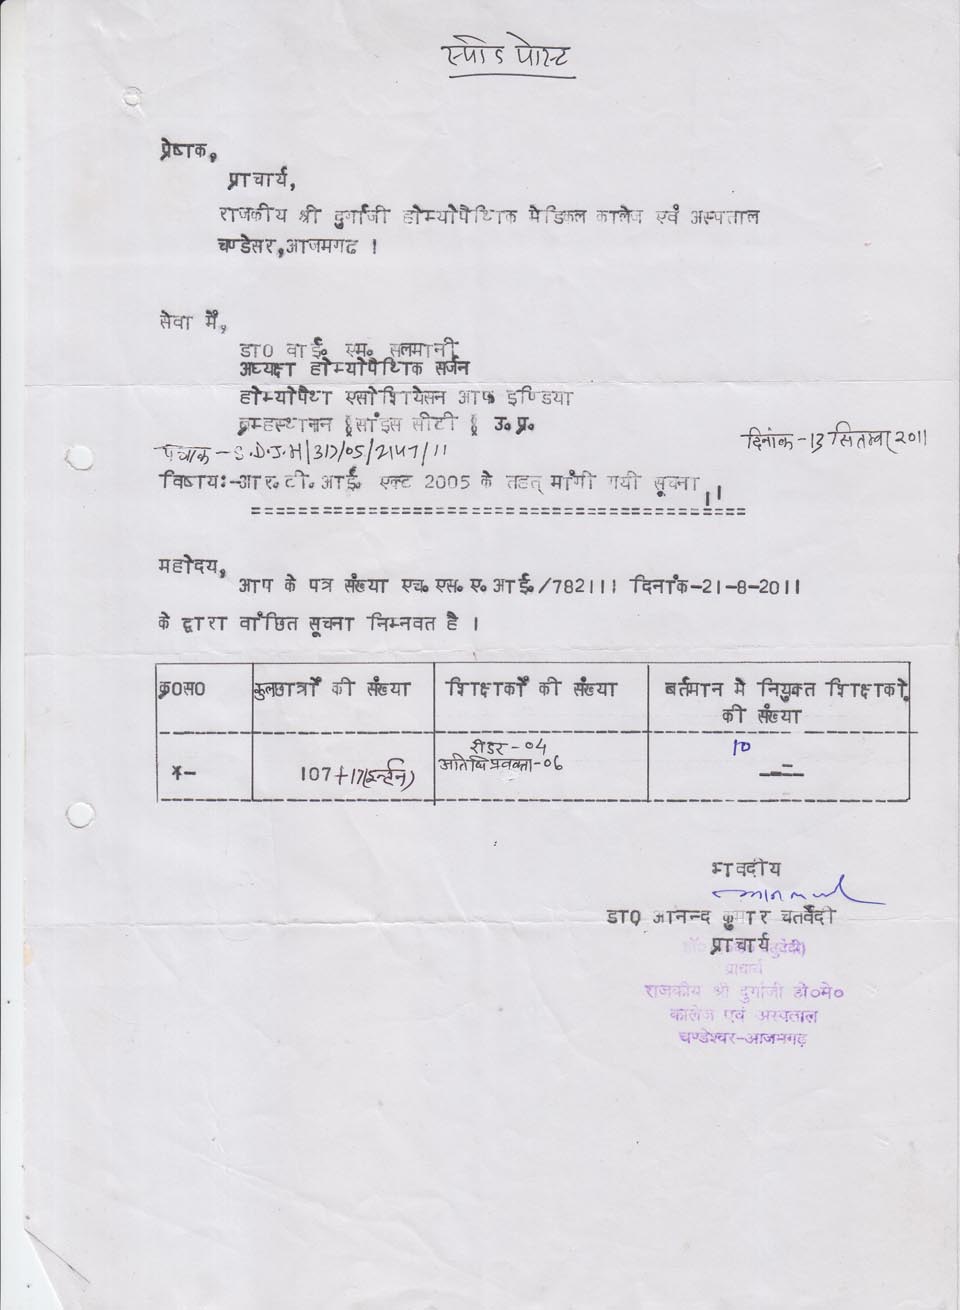 स्पीड पोस्ट
प्रेषक,
प्राचार्य,
राजकीय श्री दुर्गाजी होम्योपैथिक मेडिकल कालेज एवं अस्पताल
चण्डेसर,आजमगढ ।
सेवा में,
डा0 वाई. एम. सलमानी
अध्यक्ष होम्योपैथिक सर्जन
होम्योपैथ एसोशियेसन आफ इण्डिया
ब्रम्हस्थानन §सांइस सीटी § उ.प्र.
पत्रांक - S.D.J.H/317/05/2147/11
दिनांक - 13 सितम्बर 2011
विषय:-आर.टी.आई. एक्ट 2005 के तहत् मांगी गयी सूचना ।।
महोदय,
आप के पत्र संख्या एच.एस.ए.आई./782111 दिनांक-21-8-2011
के द्वारा वांछित सूचना निम्नवत है ।
क्र0स0 कुलछात्रों की संख्या शिक्षकों की संख्या बर्तमान मे नियुक्त शिक्षको
की संख्या
रीडर - 04 10
*- 107+17(इन्टर्न) अतिथि प्रवक्ता-06
भवदीय
डा0 आनन्द कुमार चतर्वेदी
प्राचार्य
चतुर्वेदी)
प्राचार्य
राजकीय श्री दुर्गाजी हो०मे०
कालेज एवं अस्पताल
चण्डेश्वर-आजमगढ़